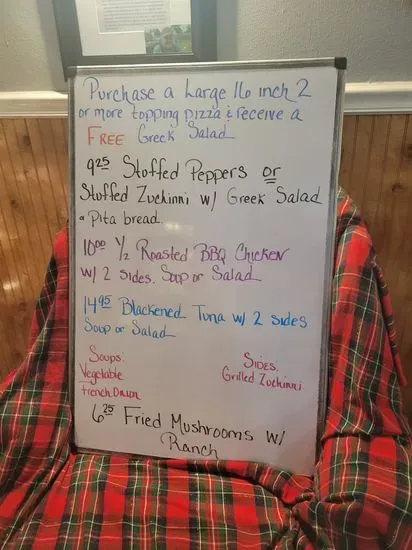 Purchase a Large 16 inch 2
or more topping pizza & receive a
FREE Greek Salad
9.25 Stuffed Peppers or
Stuffed Zuckinni w/ Greek Salad
& Pita bread
10.00 1/2 Roasted BBQ Chicken
w/ 2 sides. Soup or Salad
14.95 Blackened Tuna w/ 2 sides
Soup or Salad
Soups:
Vegetable
French Onion
Sides:
Grilled Zuckinni
6.25 Fried Mushrooms w/
Ranch